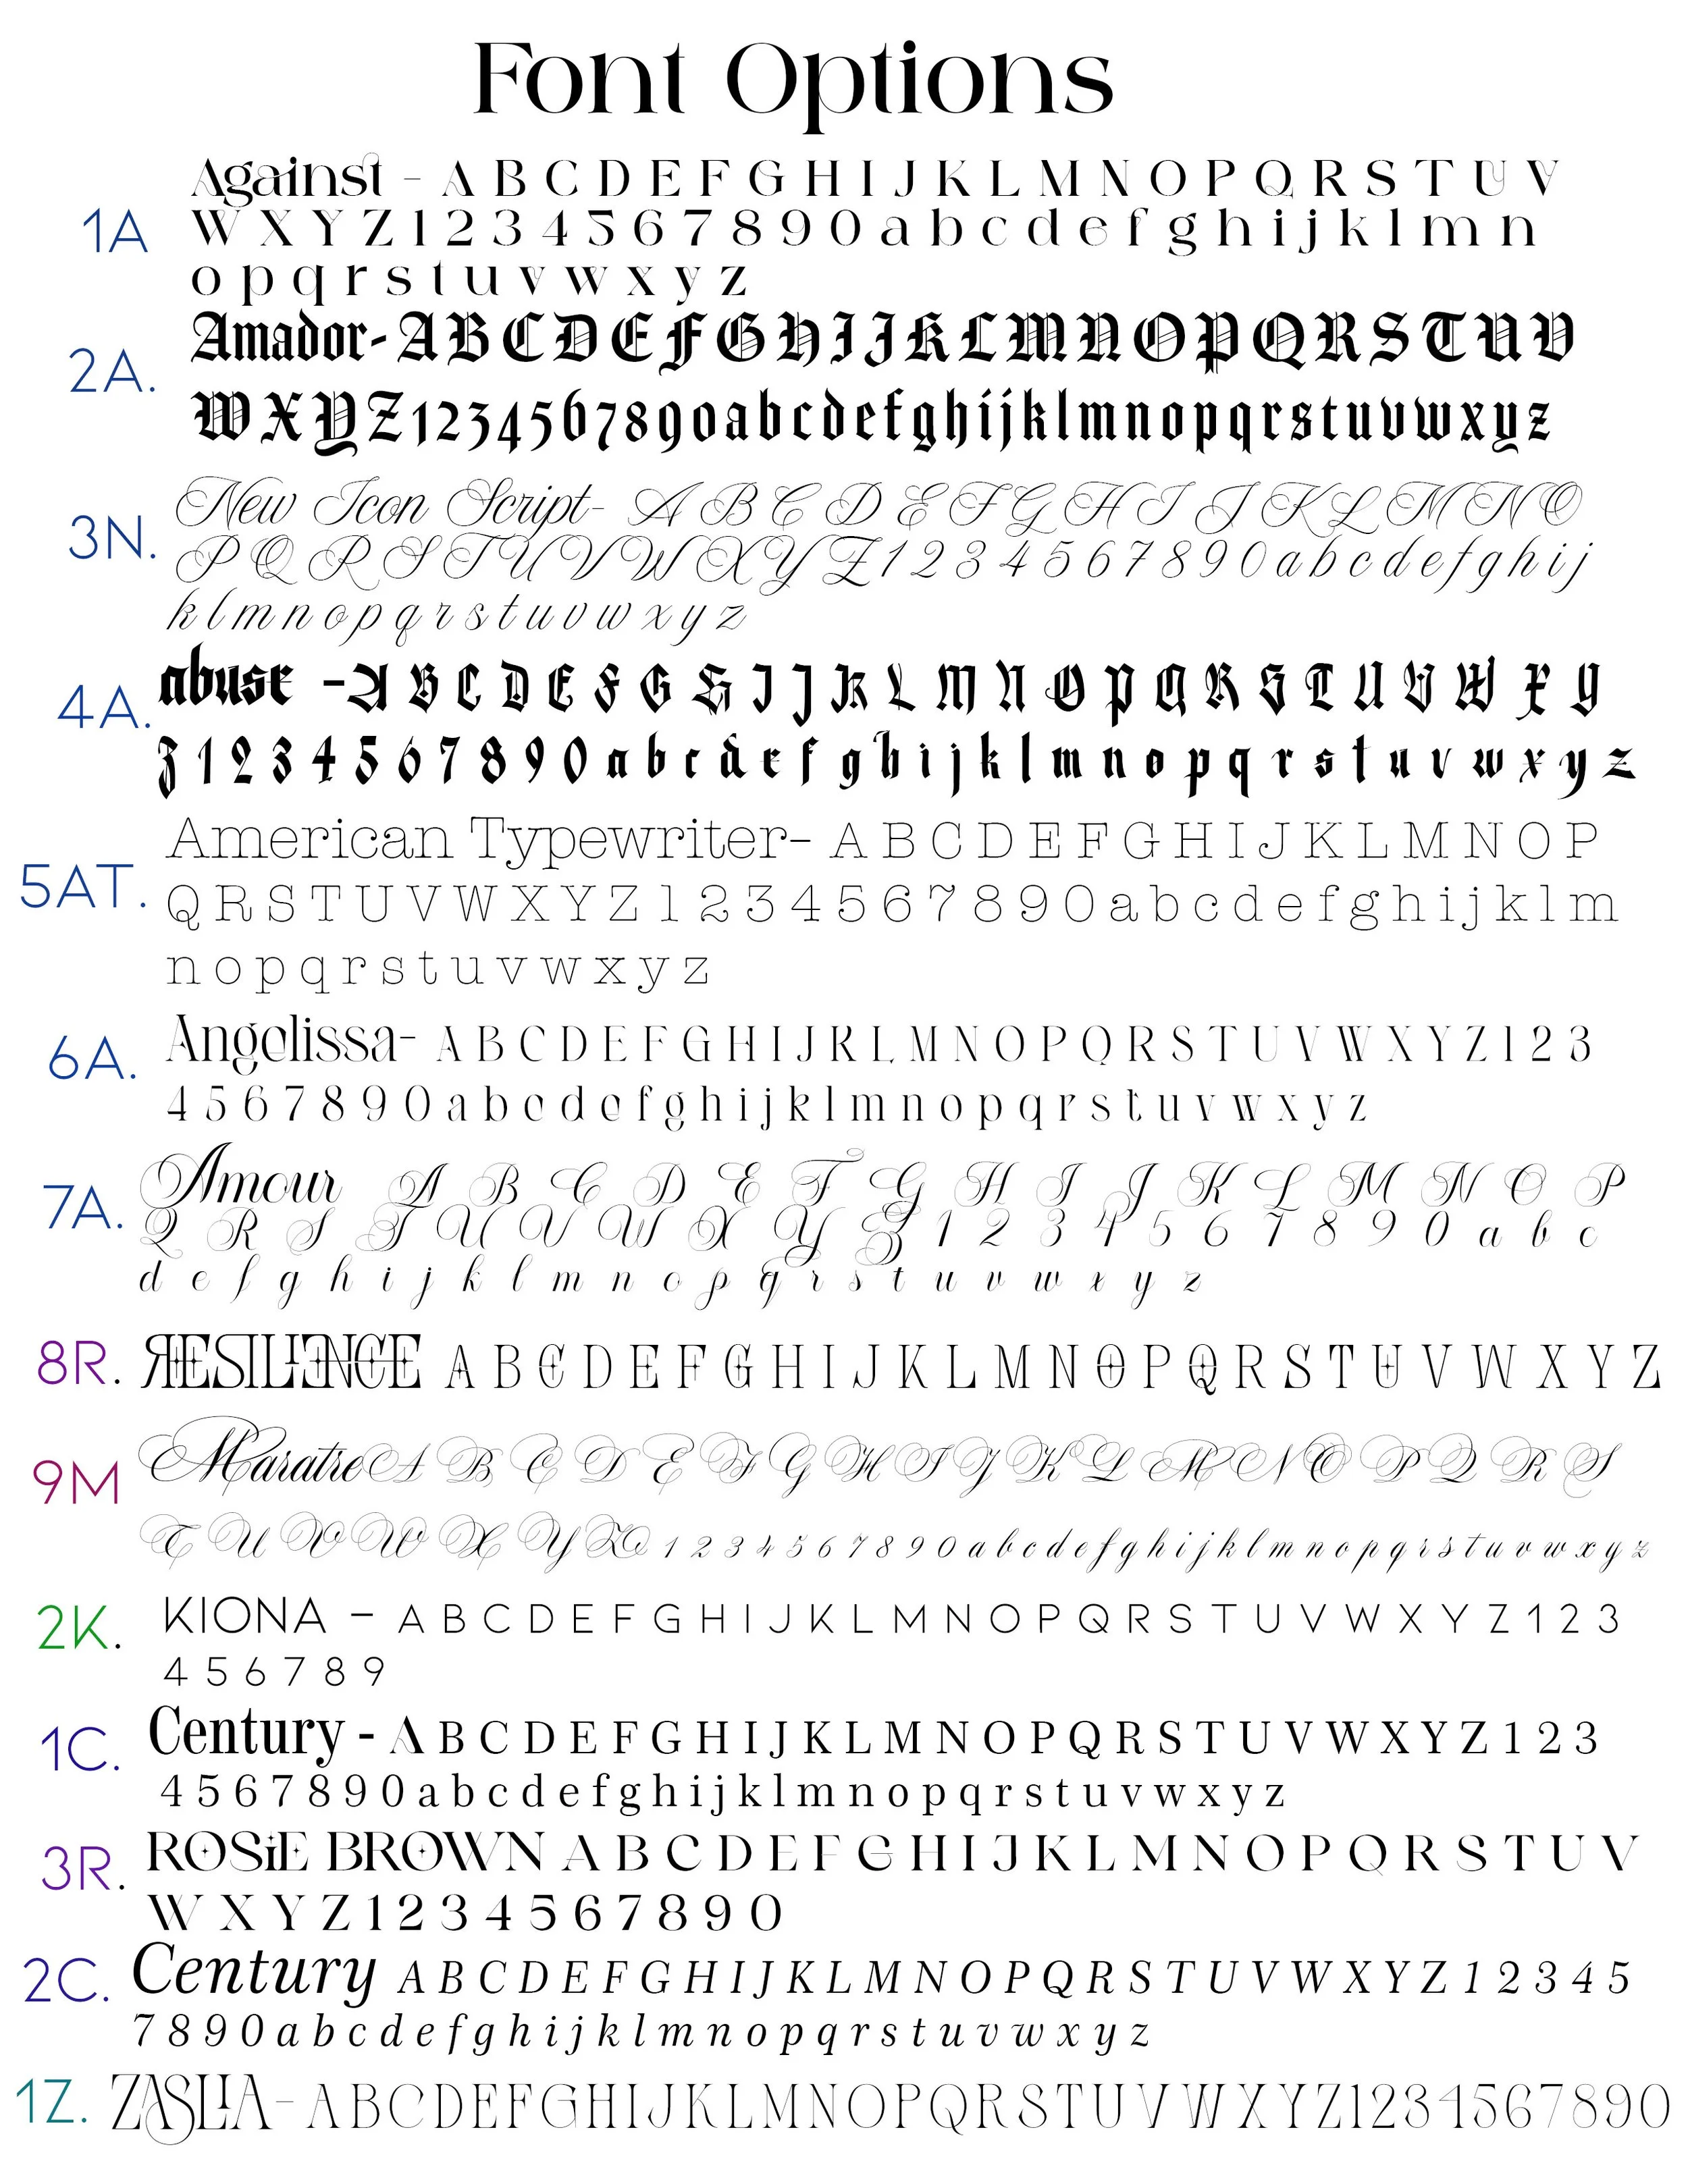 Font Options
Against - A B C D E F G H I J K L M N O P Q R S T U V
1A
W X Y Z 1 2 3 4 5 6 7 8 9 0 a b c d e f g h i j k l m n
o p q r s t u v w x y z
2A.
Amador- A B C D E F G H I J K L M N O P Q R S T U V
W X Y Z 1 2 3 4 5 6 7 8 9 0 a b c d e f g h i j k l m n o p q r s t u v w x y z
3N.
New Icon Script- A B C D E F G H I J K L M N O
P Q R S T U V W X Y Z 1 2 3 4 5 6 7 8 9 0 a b c d e f g h i j
k l m n o p q r s t u v w x y z
4A.
abuse - A B C D E F G H I J K L M N O P Q R S T U V W X Y
Z 1 2 3 4 5 6 7 8 9 0 a b c d e f g h i j k l m n o p q r s t u v w x y z
5AT.
American Typewriter- A B C D E F G H I J K L M N O P
Q R S T U V W X Y Z 1 2 3 4 5 6 7 8 9 0 a b c d e f g h i j k l m
n o p q r s t u v w x y z
6A.
Angelissa- A B C D E F G H I J K L M N O P Q R S T U V W X Y Z 1 2 3
4 5 6 7 8 9 0 a b c d e f g h i j k l m n o p q r s t u v w x y z
7A.
Amour A B C D E F G H I J K L M N O P
Q R S T U V W X Y Z 1 2 3 4 5 6 7 8 9 0 a b c
d e f g h i j k l m n o p q r s t u v w x y z
8R. RESILIENCE A B C D E F G H I J K L M N O P Q R S T U V W X Y Z
9M
Maratre A B C D E F G H I J K L M N O P Q R S
T U V W X Y Z 1 2 3 4 5 6 7 8 9 0 a b c d e f g h i j k l m n o p q r s t u v w x y z
2K. KIONA - A B C D E F G H I J K L M N O P Q R S T U V W X Y Z 1 2 3
4 5 6 7 8 9
1C. Century - A B C D E F G H I J K L M N O P Q R S T U V W X Y Z 1 2 3
4 5 6 7 8 9 0 a b c d e f g h i j k l m n o p q r s t u v w x y z
3R. ROSiE BROWN A B C D E F G H I J K L M N O P Q R S T U V
W X Y Z 1 2 3 4 5 6 7 8 9 0
2C. Century A B C D E F G H I J K L M N O P Q R S T U V W X Y Z 1 2 3 4 5
7 8 9 0 a b c d e f g h i j k l m n o p q r s t u v w x y z
1Z. ZASLIA- A B C D E F G H I J K L M N O P Q R S T U V W X Y Z 1 2 3 4 5 6 7 8 9 0